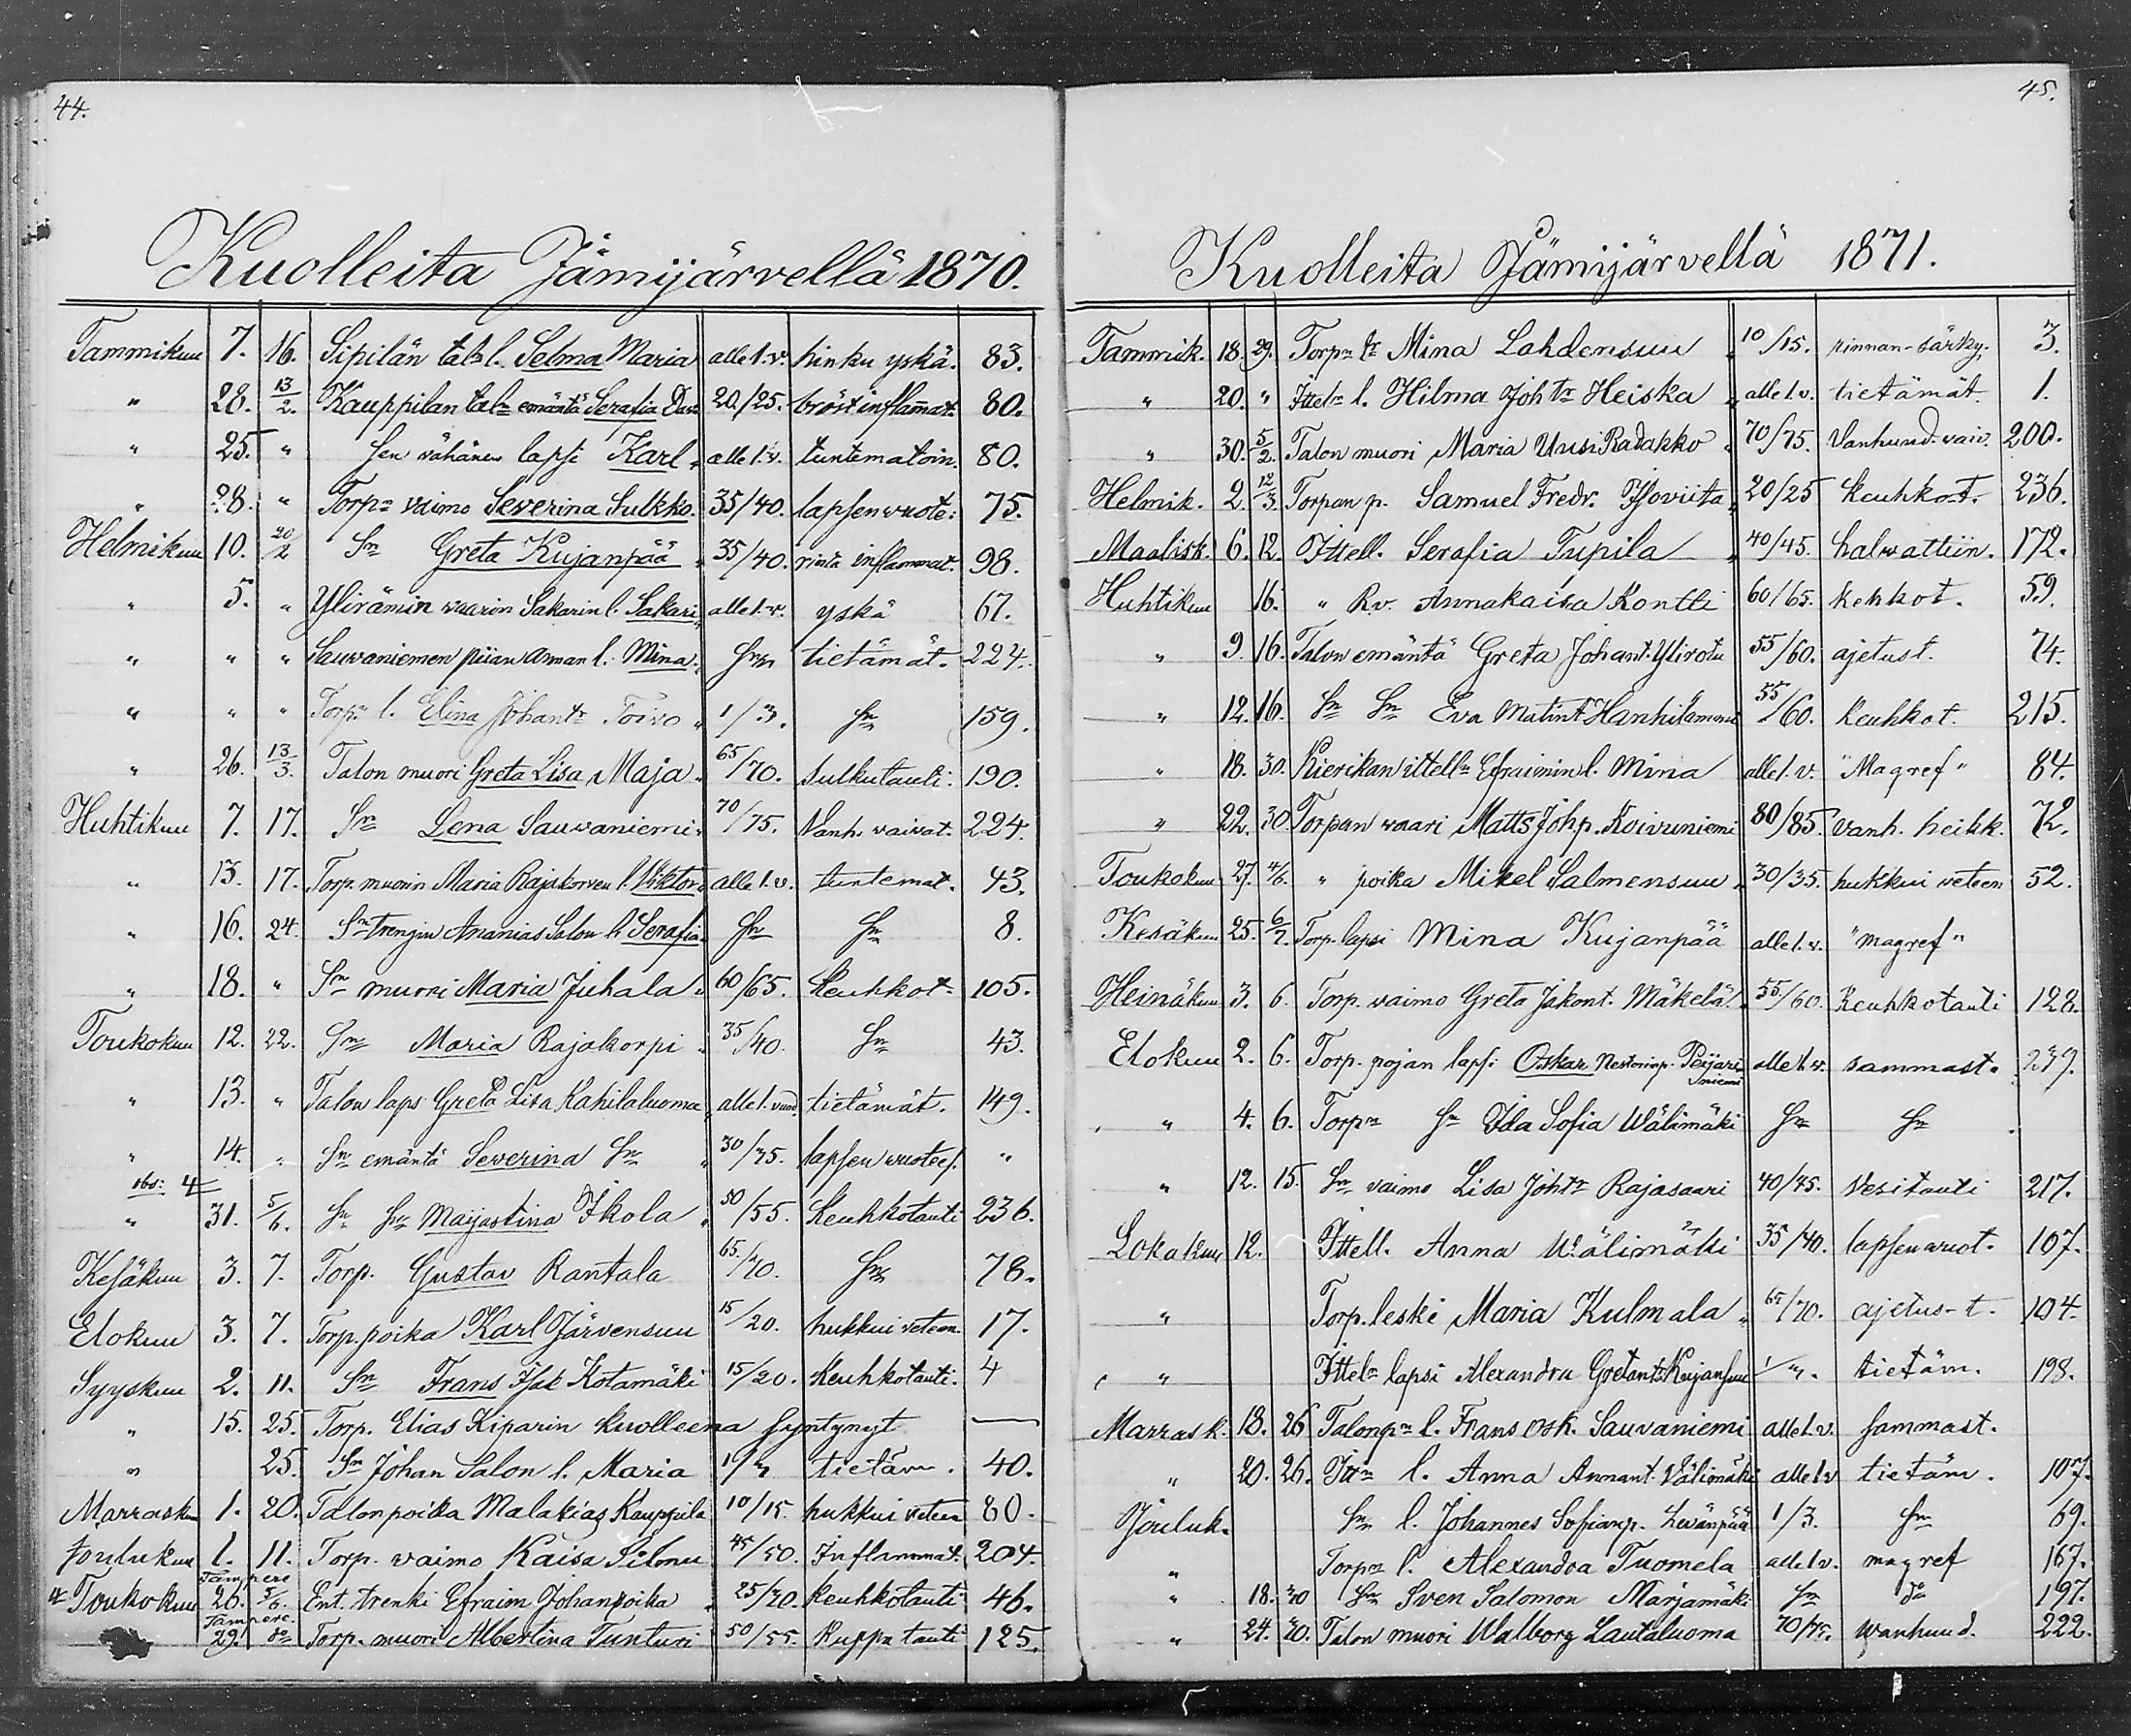 44.
Kuolleita Jämijärvellä 1870.
Tammikuu 7. 16. Sipilän tal: l. Selma Maria alle 1. v. hinku yskä. 83.
" 28. 13/2. Kauppilan tal: emäntä Serafia 20/25. bröstinflammat. 80.
" 25. " Sen vähänen lapsi Karl alle 1. v. tuntematoin. 80.
" 28. " Torp: vaimo Severina Sulkko. 35/40. lapsenvuote: 75.
Helmikuu 10. 20/2 Sn Greta Kujanpää 35/40. rinta inflammat. 98.
" 5. " Ylirämin vaarin Sakarin l. Sakari alle 1. v. yskä 67.
" " " Sauvaniemen piian Annan l. Mina. Sn tietämät. 224.
" " " Torp: l. Elina Johantr Toivo " 1/3. Sn 159.
" 26. 13/3. Talon muori Greta Lisa Maja. 65/70. sulkutauti. 190.
Huhtikuu 7. 17. Sn Lena Sauvaniemi. 70/75. Vanh. vaivat. 224.
" 13. 17. Torp. muorin Maria Rajakorven l. Viktor alle 1. v. tuntemat. 43.
" 16. 24. Sn trengin Ananias Salon l. Serafia Sn Sn 8.
" 18. " Sn muori Maria Juhala " 60/65. Keuhkot. 105.
Toukokuu 12. 22. Sn Maria Rajakorpi 35/40. Sn 43.
" 13. " Talon laps Greta Lisa Kahilaluoma alle 1. vuod. tietämät. 149.
" 14. " Sn emäntä Severina Sn " 30/35. lapsenvuotees. "
obs: 4
" 31. 5/6. Sn Sn Majjastina Ikola 50/55. Keuhkotauti 236.
Kesäkuu 3. 7. Torp. Gustav Rantala 65/70. Sn 78.
Elokuu 3. 7. Torp. poika Karl Järvensuu 15/20. hukkui veteen. 17.
Syyskuu 2. 11. Sn Frans Isak Kotamäki 15/20. Keuhkotauti. 4
" 15. 25. Torp. Elias Kiparin kuolleena syntynyt —
" 25. Sn Johan Salon l. Maria 1/3 tietäm. 40.
Marrasku 1. 20. Talonpoika Malakias Kauppila 10/15. hukkui veteen 80.
Joulukuu 1. 11. Torp. vaimo Kaisa Silonu 45/50. Inflammat. 204.
Tampere
4 Toukokuu 26. 5/6. Ent. trenki Efraim Johanpoika 25/30. keuhkotauti 46.
Tampere.
29. do Torp. muori Albertina Tunturi 50/55. Kuppa tauti 125.
45.
Kuolleita Jämijärvellä 1871.
Tammik. 18. 29. Torp: tr Mina Lahdensuu " 10/15. rinnan-särky. 3.
" 20. " Ittel: l. Hilma Joh tr Heiska " alle 1. v. tietämät. 1.
" 30. 5/2. Talon muori Maria Uusi Radakko " 70/75. Vanhuud. vaiv. 200.
Helmik. 2. 12/3. Torpan p. Samuel Fredr. Isoviita 20/25 keuhkot. 236.
Maalisk. 6. 12. Ittell. Serafia Tupila " 40/45. halvattiin. 172.
Huhtikuu 16. " Rv. Annakaisa Kontti 60/65. kehkot. 59.
" 9. 16. Talon emäntä Greta Johant. Ylirotu 55/60. ajetust. 74.
" 12. 16. Sn Sn Eva Matint. 55/60. keuhkot. 215.
" 18. 30. Kierikan ittell: Efraimin l. Mina alle 1. v. "Magref" 84.
" 22. 30 Torpan vaari Matts Johp. Koivuniemi 80/85. vanh. heikk. 72.
Toukokuu 27. 4/6. " poika Mikel Salmensuu " 30/35. hukkui veteen 52.
Kesäkuu 25. 6/7. Torp. lapsi Mina Kujanpää alle 1. v. "magref"
Heinäkuu 3. 6. Torp. vaimo Greta Jakont. Mäkelä 55/60. Keuhkotauti 128.
Elokuu 2. 6. Torp. pojan lapsi Oskar Nestorinp. Peijariniemi alle 1. v. sammast. 239.
" 4. 6. Torp: Sn Ida Sofia Wälimäki Sn Sn
" 12. 15. Sn vaimo Lisa Johtr Rajasaari 40/45. Vesitauti 217.
Lokakuu 12. Ittell. Anna Wälimäki 35/40. lapsenvuot. 107.
" Torp. leski Maria Kulmala " 65/70. ajetus-t. 104.
" Ittel: lapsi Alexandra Gretant: Kujansuu 1/3. tietäm. 198.
Marrask. 18. 26 Talonp: l. Frans Osk. Sauvaniemi alle 1. v. sammast.
" 20. 26. Itt: l. Anna Annant. Välimäki alle 1 v tietäm. 107.
Jouluk. Sn l. Johannes Sofianp. Levänpää 1/3. Sn 69.
" Torp: l. Alexandra Tuomela alle 1 v. magref 167.
" 18. 30 Sn Sven Salomon Marjamäki Sn do 197.
" 24. 30. Talon muori Walborg Lautaluoma 70/75. wanhuud. 222.